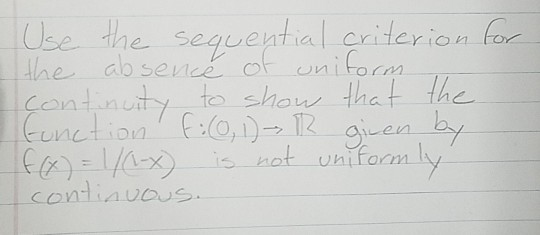 Use the sequential criterion for
the absence of uniform
continuity to show that the
function f:(0,1)→ℝ given by
f(x) = 1/(1-x) is not uniformly
continuous.